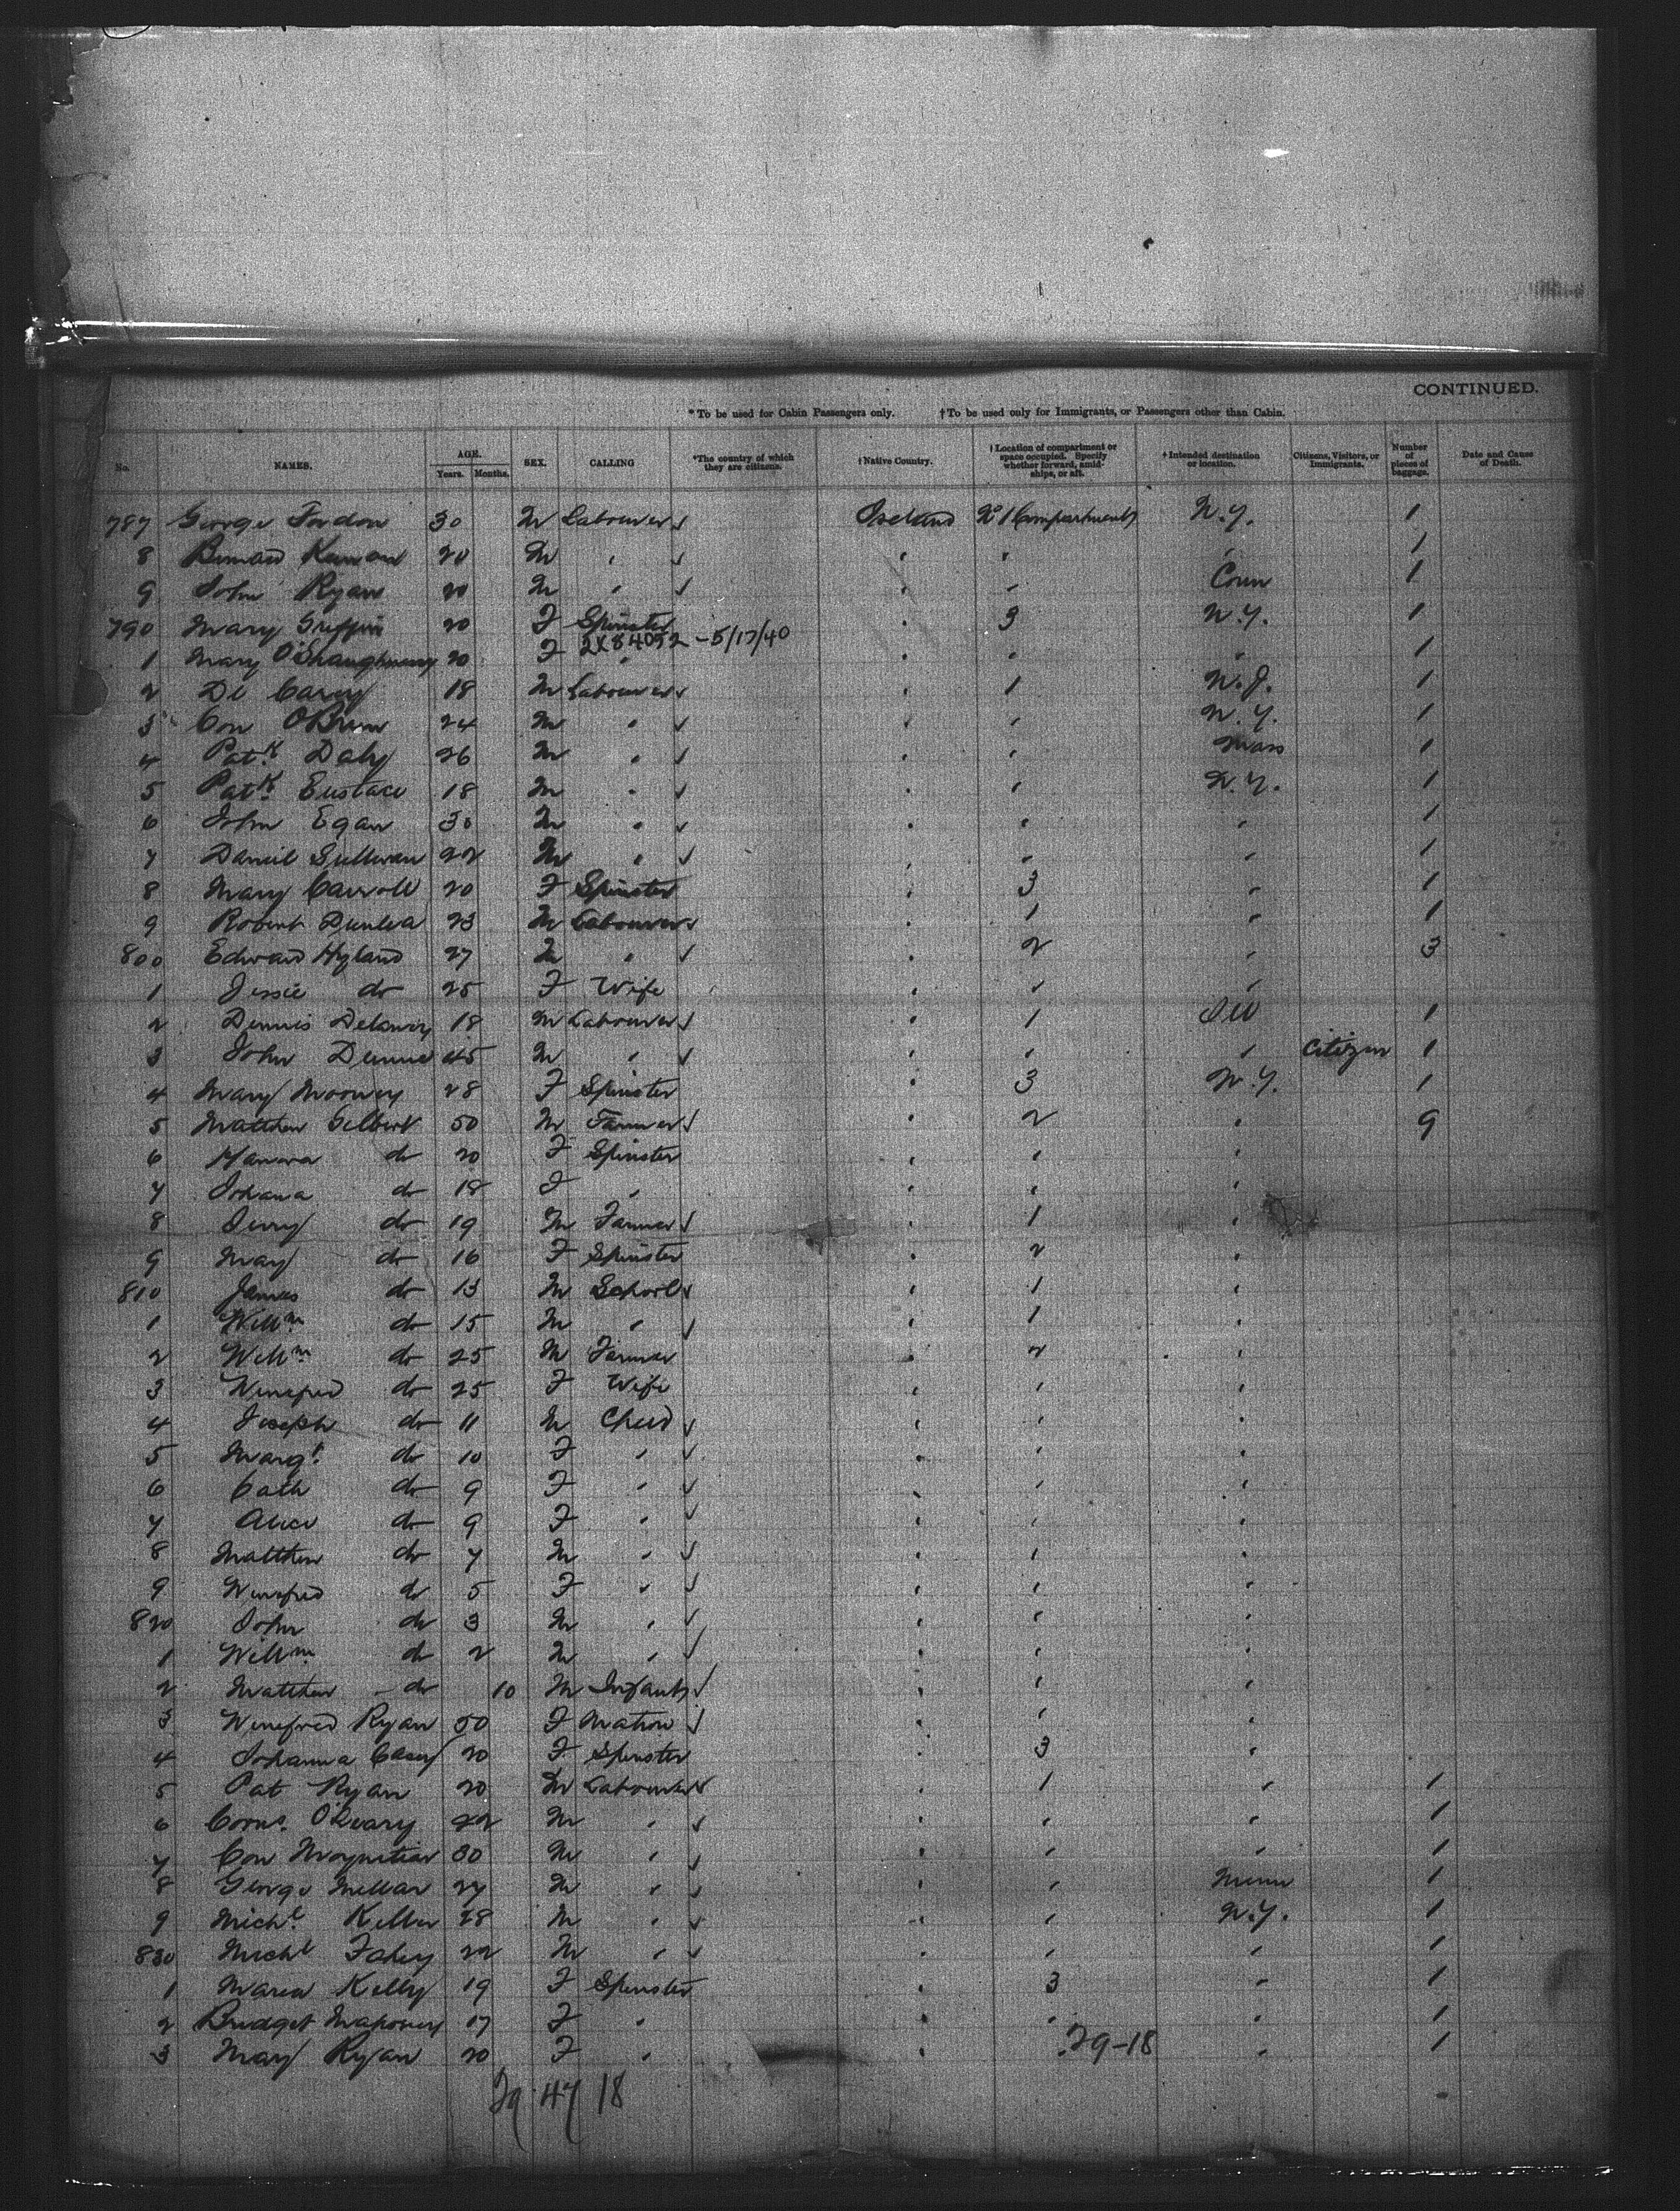 CONTINUED.
*To be used for Cabin Passengers only. †To be used only for Immigrants, or Passengers other than Cabin.
No. NAMES. AGE. Years. Months. SEX. CALLING *The country of which they are citizens. †Native Country. †Location of compartment or space occupied. Specify whether forward, amidships, or aft. †Intended destination or location. Citizens, Visitors, or Immigrants. Number of pieces of baggage. Date and Cause of Death.
787 George 30 M Labourer ✓ Ireland No 1 Compartment N.Y. 1
8 20 M " ✓ " " " 1
9 John Ryan 20 M " ✓ " " Conn 1
790 Mary Griffin 20 F Spinster " 3 N.Y. 1
1 Mary O'Shaughnessy 20 F " 2X84052 - 5/17/40 " " " 1
2 Carey 18 M Labourer ✓ " 1 N.J. 1
3 Con O'Brien 24 M " ✓ " " N.Y. 1
4 Patk. Daly 26 M " ✓ " " Mass 1
5 Patk. Eustace 18 M " ✓ " " N.Y. 1
6 John Egan 30 M " ✓ " " " 1
7 Daniel Sullivan 22 M " ✓ " " " 1
8 Mary Carroll 20 F Spinster " 3 " 1
9 Robert Dunlea 23 M Labourer ✓ " 1 " 1
800 Edward Hyland 27 M " ✓ " 2 " 3
1 Jessie do 25 F Wife " " "
2 Dennis Delaney 18 M Labourer ✓ " 1 Ill 1
3 John Dunne 45 M " ✓ " " " Citizen 1
4 Mary Mooney 28 F Spinster " 3 N.Y. 1
5 Matthew Gilbert 50 M Farmer ✓ " 2 " 9
6 Hanna do 20 F Spinster " " "
7 Johana do 18 F " " " "
8 Jerry do 19 M Farmer ✓ " 1 "
9 Mary do 16 F Spinster " 2 "
810 James do 13 M School ✓ " 1 "
1 Willm. do 15 M " ✓ " 1 "
2 Willm. do 25 M Farmer " 2 "
3 Winefred do 25 F Wife " " "
4 Joseph do 11 M Child ✓ " " "
5 Margt. do 10 F " ✓ " " "
6 Cath do 9 F " ✓ " " "
7 Alice do 9 F " ✓ " " "
8 Matthew do 7 M " ✓ " " "
9 Winefred do 5 F " ✓ " " "
820 John do 3 M " ✓ " " "
1 Willm. do 2 M " ✓ " " "
2 Matthew do 10 M Infant ✓ " " "
3 Winefred Ryan 50 F Matron ✓ " " "
4 Johanna Casey 20 F Spinster " 3 "
5 Pat Ryan 20 M Labourer ✓ " 1 " 1
6 Corns. O'Leary 22 M " ✓ " " " 1
7 Con Moynihan 30 M " ✓ " " " 1
8 George Millar 27 M " ✓ " " Minn 1
9 Michl. Keller 28 M " ✓ " " N.Y. 1
830 Michl Fahey 22 M " ✓ " " " 1
1 Maria Kelly 19 F Spinster " 3 " 1
2 Bridget 17 F " " " " 1
3 Mary Ryan 20 F " " " " 1
29-18
29 47 18